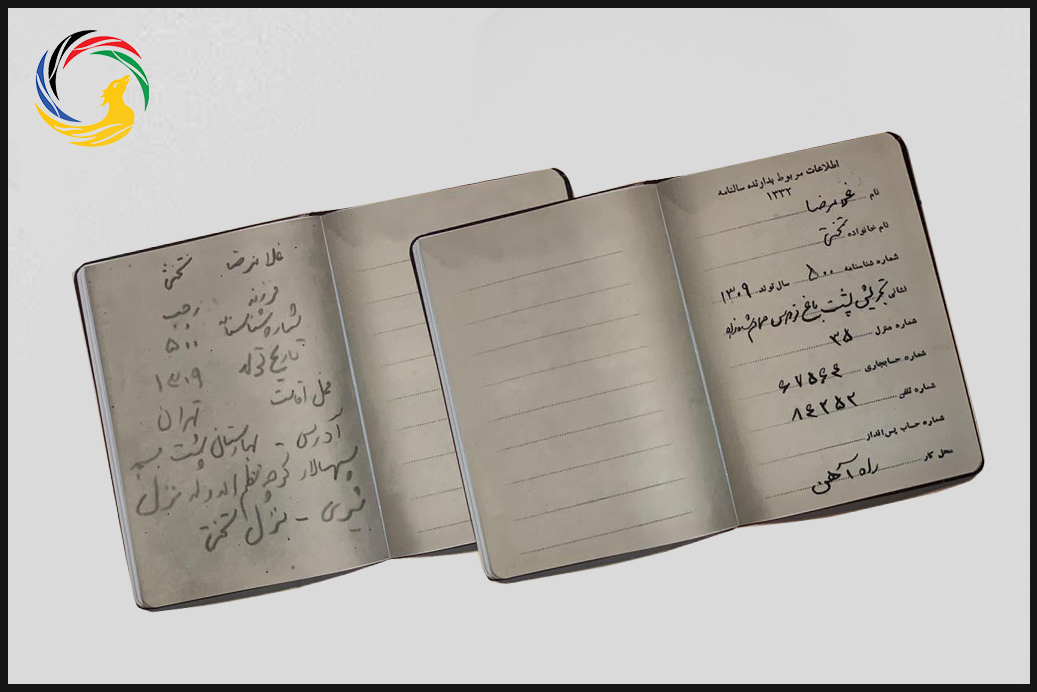 اطلاعات مربوط بدارنده سالنامه
۱۳۳۲
نام غلامرضا
نام خانواده تختی
شماره شناسنامه ۵۰۰ سال تولد ۱۳۰۹
نشانی تجریش پشت باغ فردوس حمام
شماره منزل ۳۵
شماره حسابجاری ۶۷۵۶۴
شماره تلفن ۸۴۲۵۲
شماره حساب پس‌انداز
محل کار راه آهن
غلامرضا تختی
فرزند رجب
شماره شناسنامه ۵۰۰
تاریخ تولد ۱۳۰۹
محل اقامت تهران
آدرس - بهارستان پشت مسجد
سپهسالار کوچه نظم الدوله منزل
- منزل تختی